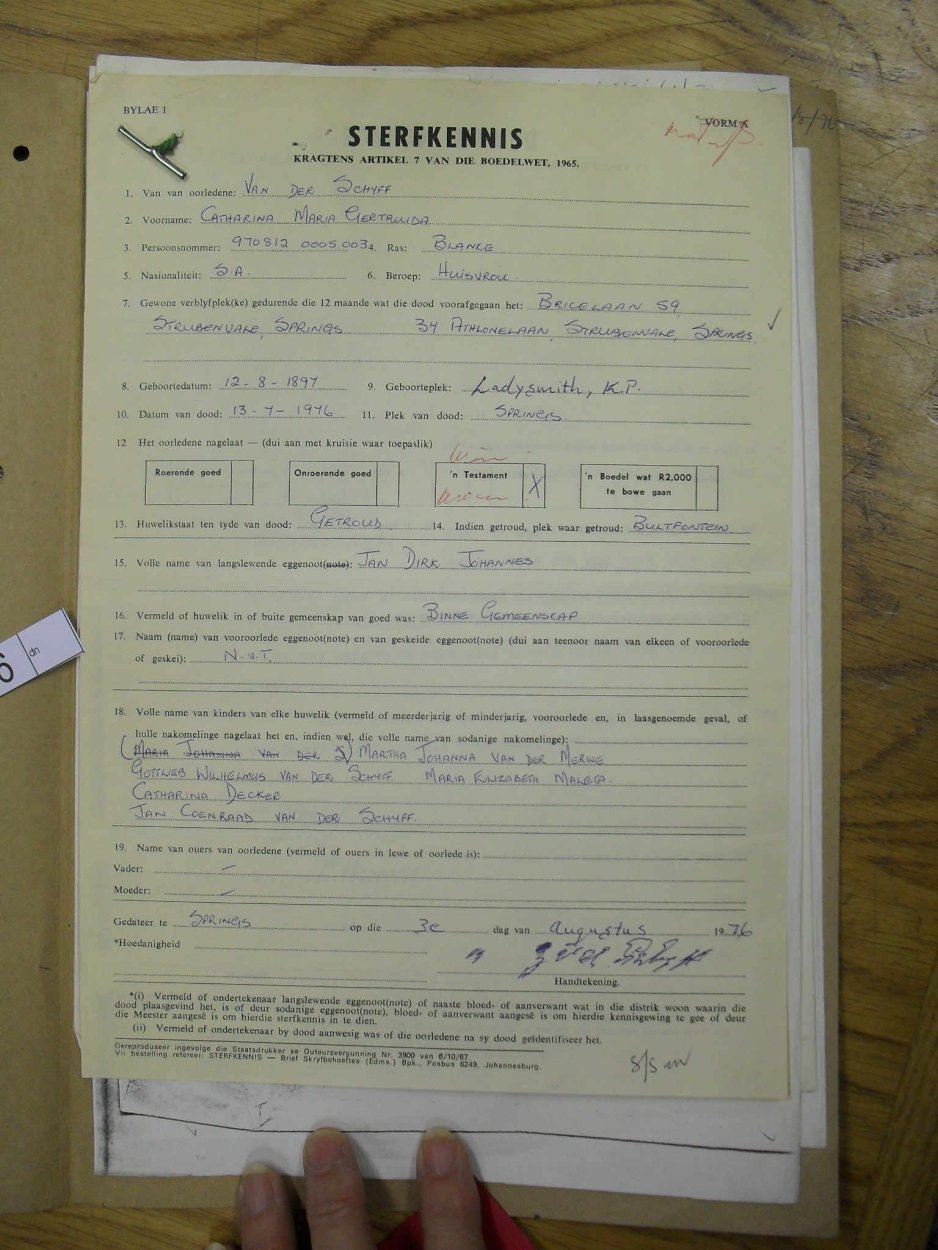 BYLAE 1
VORM A
STERFKENNIS
KRAGTENS ARTIKEL 7 VAN DIE BOEDELWET, 1965.
1. Van van oorledene: VAN DER SCHYFF
2. Voorname: CATHARINA MARIA GERTRUIDA
3. Persoonsnommer: 970812 0005 003 4. Ras: BLANKE
5. Nasionaliteit: S.A. 6. Beroep: HUISVROU
7. Gewone verblyfplek(ke) gedurende die 12 maande wat die dood voorafgegaan het: BRICELAAN 59,
STRUBENVALE, SPRINGS 34 ATHLONELAAN, STRUBENVALE, SPRINGS.
8. Geboortedatum: 12-8-1897 9. Geboorteplek: Ladysmith, K.P.
10. Datum van dood: 13-7-1976 11. Plek van dood: SPRINGS
12 Het oorledene nagelaat — (dui aan met kruisie waar toepaslik)
Roerende goed Onroerende goed 'n Testament X 'n Boedel wat R2,000
te bowe gaan
13. Huwelikstaat ten tyde van dood: GETROUD 14. Indien getroud, plek waar getroud: BULTFONTEIN
15. Volle name van langslewende eggenoot(note): JAN DIRK JOHANNES
16. Vermeld of huwelik in of buite gemeenskap van goed was: BINNE GEMEENSKAP
17. Naam (name) van vooroorlede eggenoot(note) en van geskeide eggenoot(note) (dui aan teenoor naam van elkeen of vooroorlede
of geskei): N.v.T.
18. Volle name van kinders van elke huwelik (vermeld of meerderjarig of minderjarig, vooroorlede en, in laasgenoemde geval, of
hulle nakomelinge nagelaat het en, indien wel, die volle name van sodanige nakomelinge):
(MARIA JOHANNA VAN DER S) MARTHA JOHANNA VAN DER MERWE
GOTTLIEB WILHELMUS VAN DER SCHYFF MARIA ELIZABETH
CATHARINA DECKER
JAN COENRAAD VAN DER SCHYFF
19. Name van ouers van oorledene (vermeld of ouers in lewe of oorlede is):
Vader: —
Moeder: —
Gedateer te SPRINGS op die 3e dag van augustus 1976
*Hoedanigheid
Handtekening.
*(i) Vermeld of ondertekenaar langslewende eggenoot(note) of naaste bloed- of aanverwant wat in die distrik woon waarin die
dood plaasgevind het, is of deur sodanige eggenoot(note), bloed- of aanverwant aangesê is om hierdie kennisgewing te gee of deur
die Meester aangesê is om hierdie sterfkennis in te dien.
(ii) Vermeld of ondertekenaar by dood aanwesig was of die oorledene na sy dood geïdentifiseer het.
Gereproduseer ingevolge die Staatsdrukker se Outeursvergunning Nr. 3900 van 6/10/67.
Vir bestelling refereer: STERFKENNIS — Brief Skryfbehoeftes (Edms.) Bpk., Posbus 6249, Johannesburg.